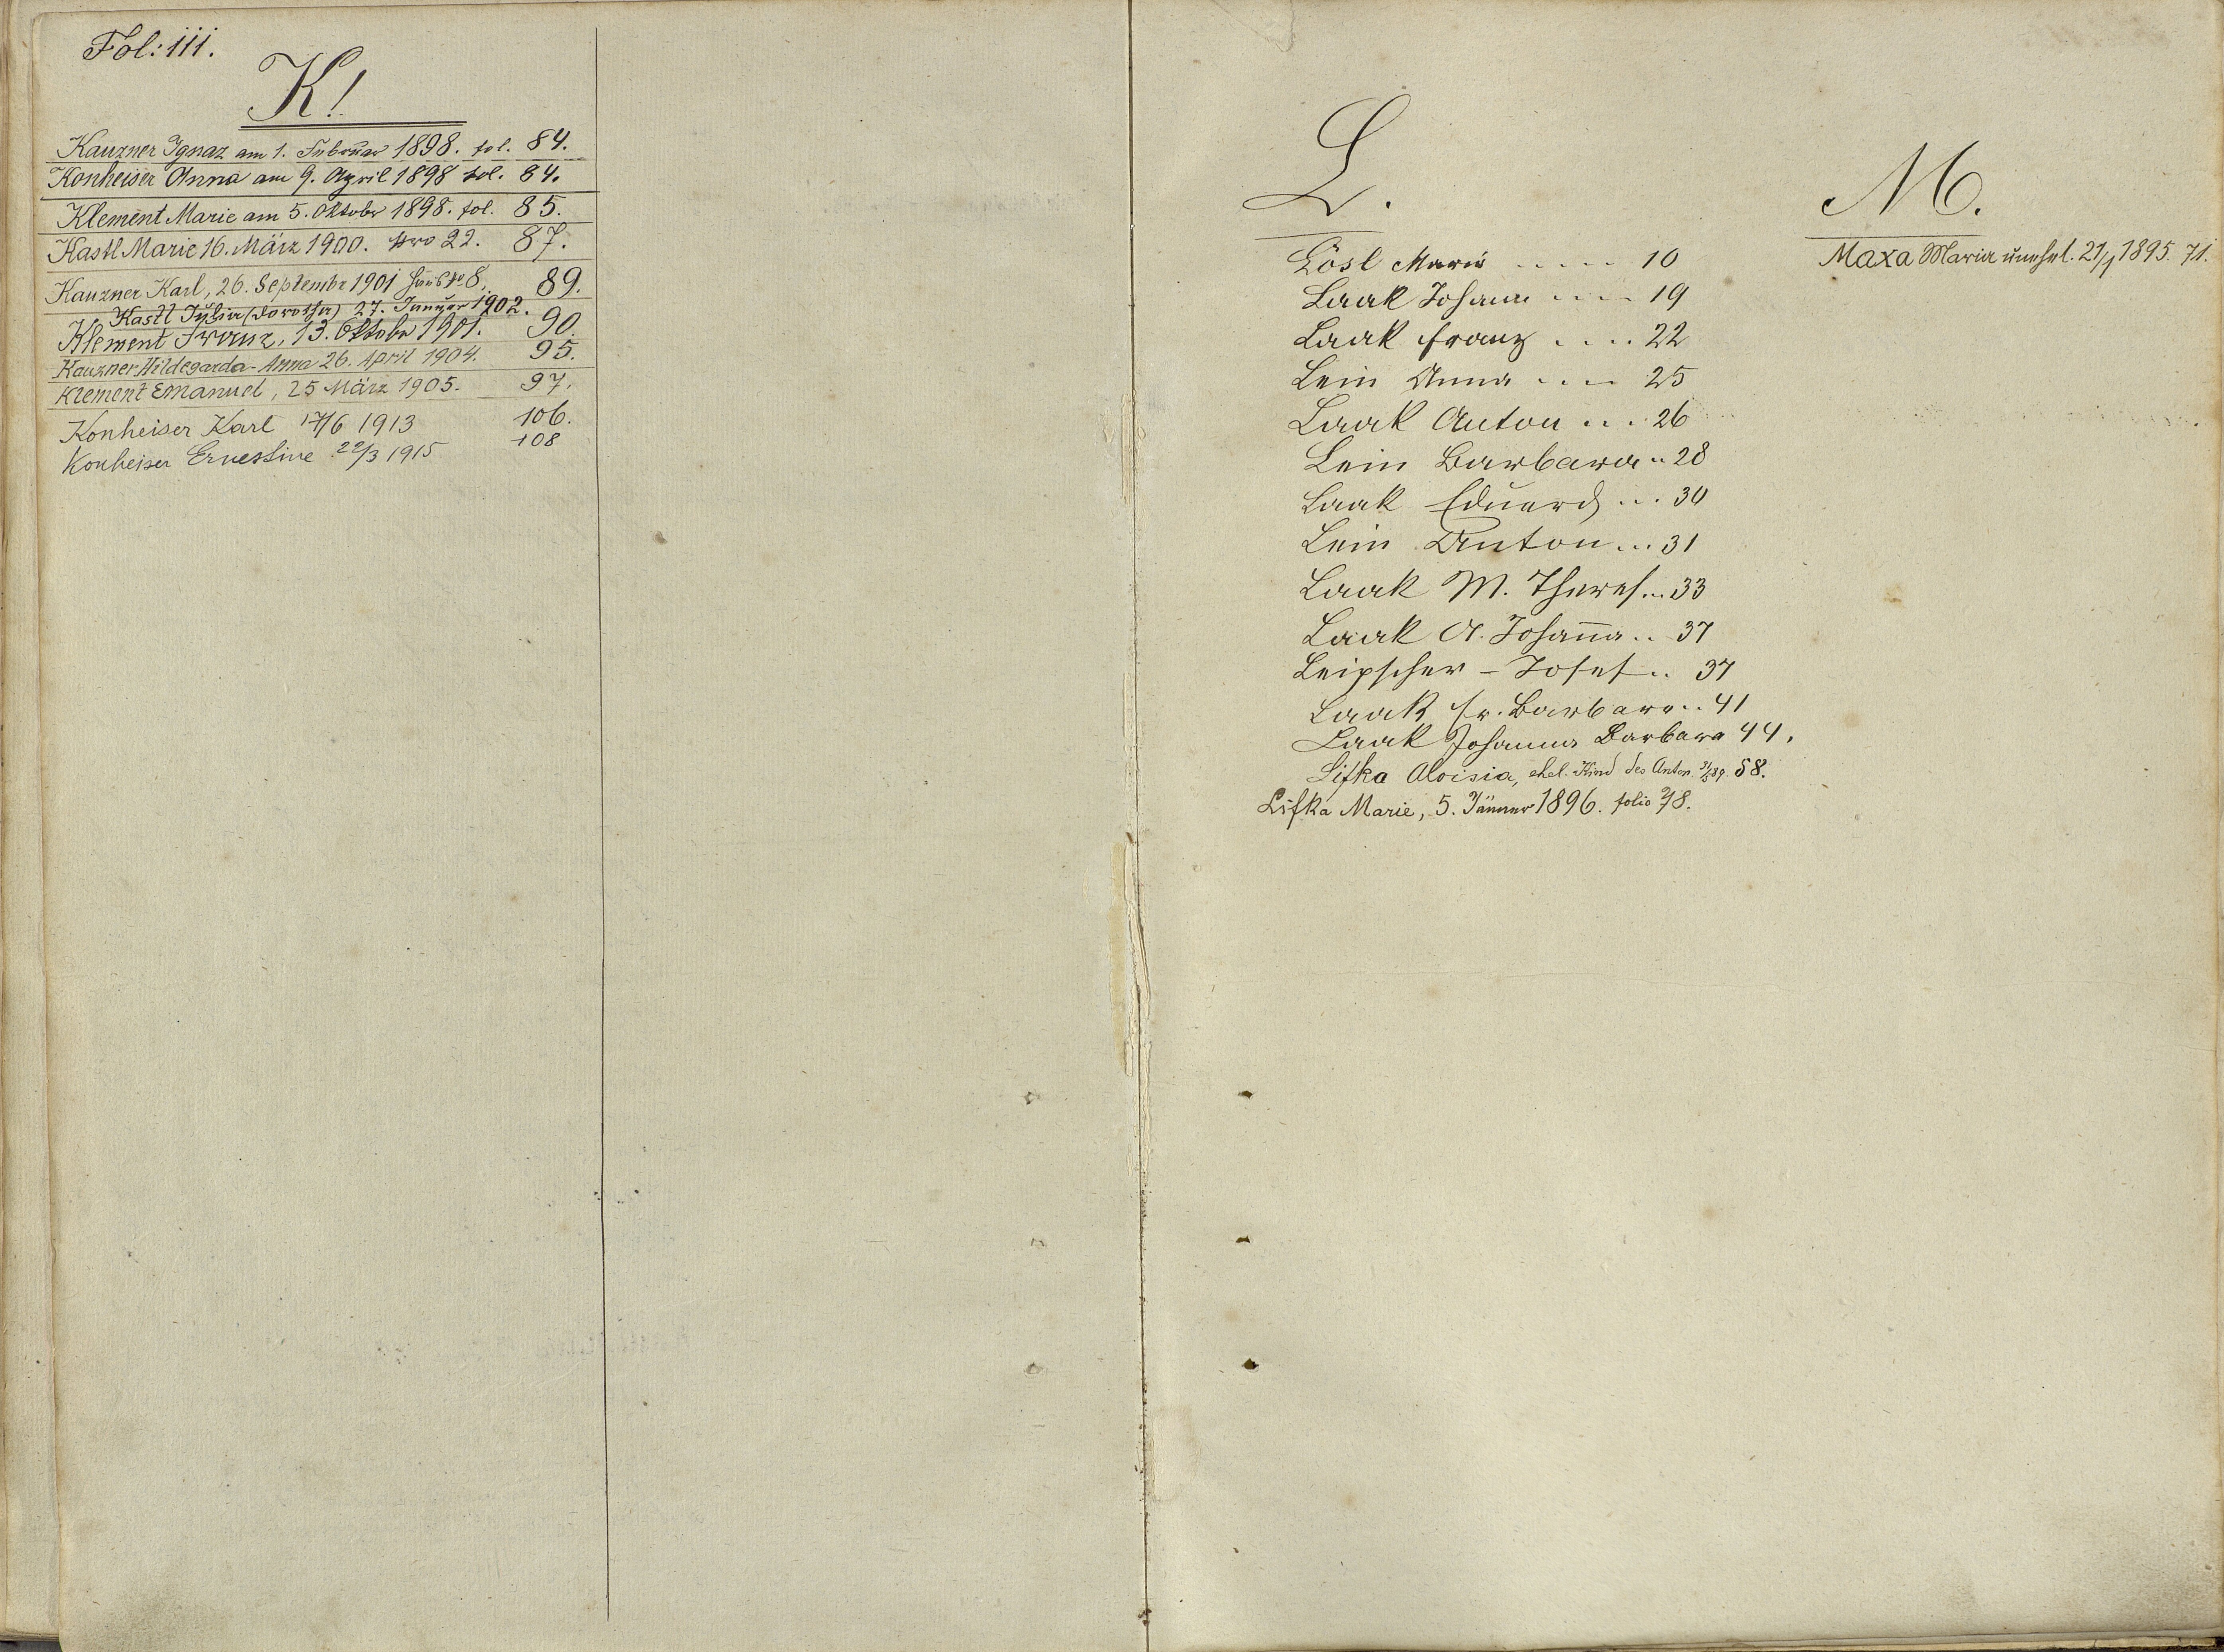 Fol: 111.
K!
Kauzner Ignaz am 1. Februar 1898. fol. 84.
Konheiser Anna am 9. April 1898 fol. 84.
Klement Marie am 5. Oktober 1898. fol. 85.
Kastl Marie 16. März 1900. Nro 22. 87.
Kauzner Karl, 26. Septembr 1901 8. 89.
Kastl Julia (Dorothea) 27. Januar 1902.
Klement Franz, 13. Oktober 1901. 90.
Kauzner Hildegarda-Anna 26. April 1904. 95.
Klement Emanuel, 25 März 1905. 97.
Konheiser Karl 17/6 1913 106.
Konheiser Ernestine 22/3 1915 108
L.
Lösl Maria ..... 10
Laak Johann .... 19
Laak Franz .... 22
Lein Anna .... 25
Laak Anton ... 26
Lein Barbara .. 28
Laak Eduard ... 30
Lein Anton ... 31
Laak M. Theres. .. 33
Laak A. Johan̄a .. 37
Leipscher - Josef .. 37
Laak Fr. Barbara .. 41
Laak Johanna Barbara 44.
Lifka Aloisia, ehel. Kind des Anton 58.
Lifka Marie, 5. Jänner 1896. folio 78.
M.
Maxa Maria unehel. 21/1 1895. 71.